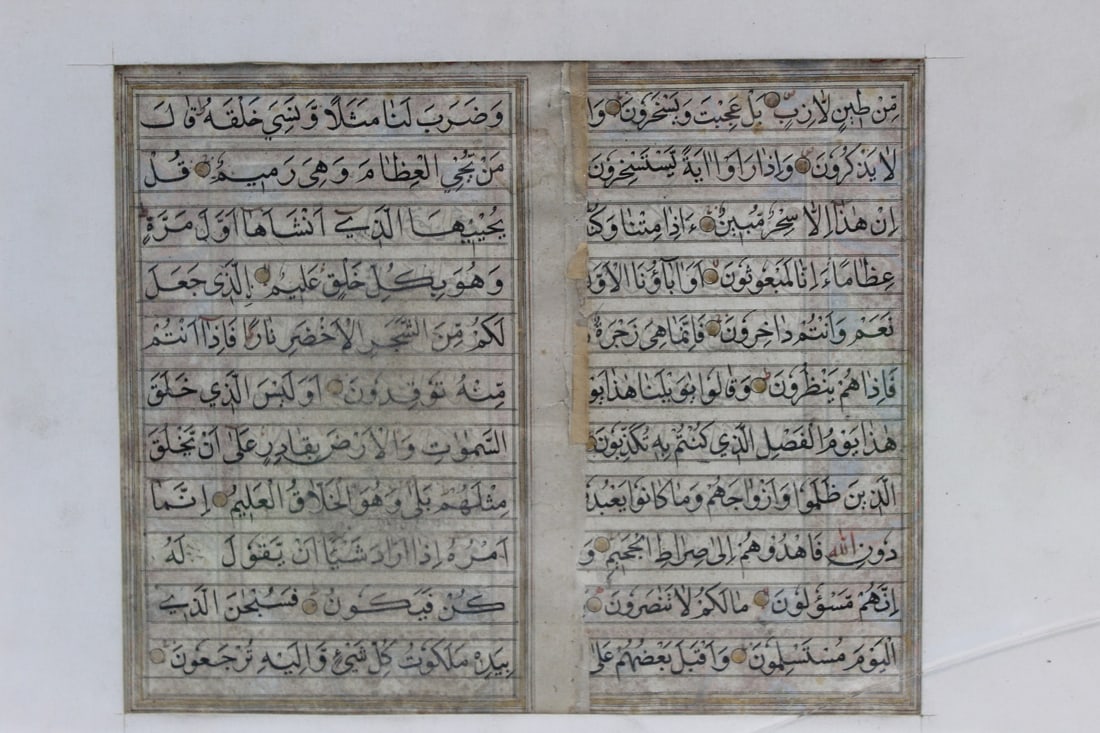 مِنْ طِينٍ لَازِبٍ بَلْ عَجِبْتَ وَيَسْخَرُونَ
لَا يَذْكُرُونَ وَاِذَا رَاَوْا اٰيَةً يَسْتَسْخِرُونَ
اِنْ هٰذَا اِلَّا سِحْرٌ مُبِينٌ ءَاِذَا مِتْنَا وَكُنَّا
عِظَامًا ءَاِنَّا لَمَبْعُوثُونَ اَوَاٰبَاؤُنَا
نَعَمْ وَاَنْتُمْ دَاخِرُونَ فَاِنَّمَا هِيَ زَجْرَةٌ
فَاِذَا هُمْ يَنْظُرُونَ وَقَالُوا يَوَيْلَنَا هٰذَا يَوْ
هٰذَا يَوْمُ الْفَصْلِ الَّذِي كُنْتُمْ بِهِ تُكَذِّبُونَ
الَّذِينَ ظَلَمُوا وَاَزْوَاجَهُمْ وَمَا كَانُوا يَعْبُدُ
دُونِ اللهِ فَاهْدُوهُمْ اِلٰى صِرَاطِ الْجَحِيمِ وَ
اِنَّهُمْ مَسْؤُلُونَ مَا لَكُمْ لَا تَنَاصَرُونَ
الْيَوْمَ مُسْتَسْلِمُونَ وَاَقْبَلَ بَعْضُهُمْ عَلٰى
وَضَرَبَ لَنَا مَثَلًا وَنَسِيَ خَلْقَهُ قَالَ
مَنْ يُحْيِ الْعِظَامَ وَهِيَ رَمِيمٌ قُلْ
يُحْيِيهَا الَّذِي اَنْشَاَهَا اَوَّلَ مَرَّةٍ
وَهُوَ بِكُلِّ خَلْقٍ عَلِيمٌ الَّذِي جَعَلَ
لَكُمْ مِنَ الشَّجَرِ الْاَخْضَرِ نَارًا فَاِذَا اَنْتُمْ
مِنْهُ تُوقِدُونَ اَوَلَيْسَ الَّذِي خَلَقَ
السَّمٰوٰتِ وَالْاَرْضَ بِقَادِرٍ عَلٰى اَنْ يَخْلُقَ
مِثْلَهُمْ بَلٰى وَهُوَ الْخَلَّاقُ الْعَلِيمُ اِنَّمَا
اَمْرُهُ اِذَا اَرَادَ شَيْئًا اَنْ يَقُولَ لَهُ
كُنْ فَيَكُونُ فَسُبْحٰنَ الَّذِي
بِيَدِهِ مَلَكُوتُ كُلِّ شَيْءٍ وَاِلَيْهِ تُرْجَعُونَ